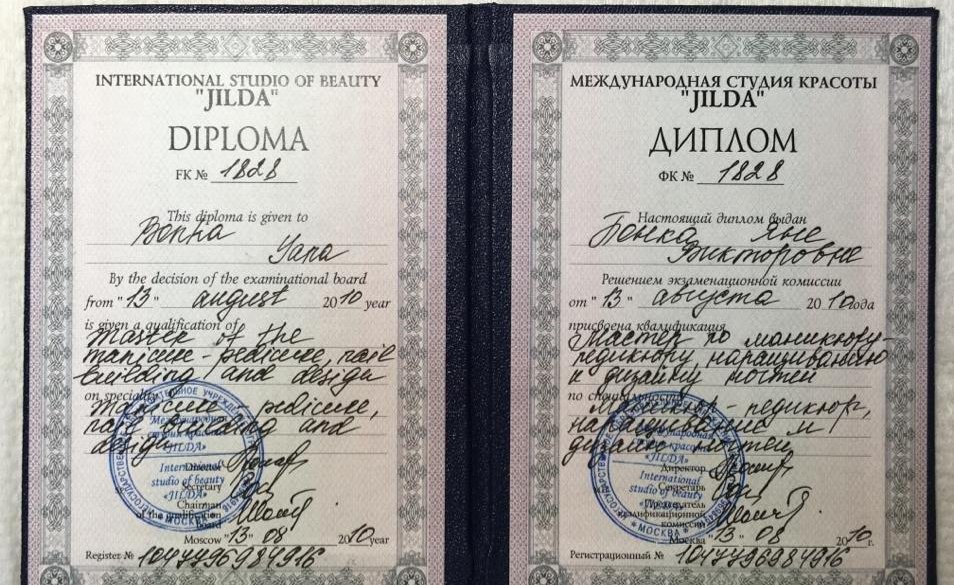 INTERNATIONAL STUDIO OF BEAUTY
"JILDA"
DIPLOMA
FK № 1828
This diploma is given to
By the decision of the examinational board
from "13" august 2010 year
is given a qualification of
Master of the
manicure-pedicure, nail
building and design
on speciality
manicure pedicure,
nail building and
design
Director
Secretary
Chairman
of the qualification
board
Moscow "13" 08 2010 year
Register № 1047796984916
International
studio of beauty
«JILDA»
МОСКВА
МЕЖДУНАРОДНАЯ СТУДИЯ КРАСОТЫ
"JILDA"
ДИПЛОМ
ФК № 1828
Настоящий диплом выдан
Яне
Викторовне
Решением экзаменационной комиссии
от "13" августа 2010 года
присвоена квалификация
Мастер по маникюру-
педикюру, наращиванию
и дизайну ногтей
по специальности
Маникюр-педикюр,
наращивание и
дизайн ногтей
Директор
Секретарь
Председатель
квалификационной
комиссии
Москва "13" 08 2010 г.
Регистрационный № 1047796984916
International
studio of beauty
«JILDA»
МОСКВА